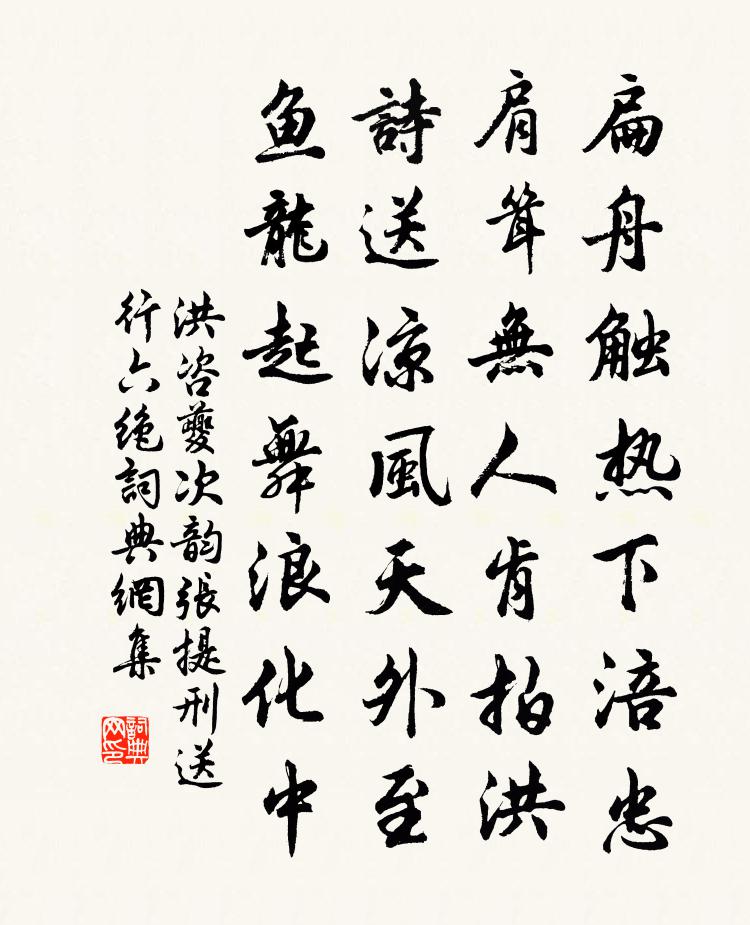 扁舟触热下涪忠
肩耸無人肯拍洪
詩送涼風天外至
鱼龍起舞浪化中
洪咨夔次韵張提刑送
行六绝詞典網集
詞典网印